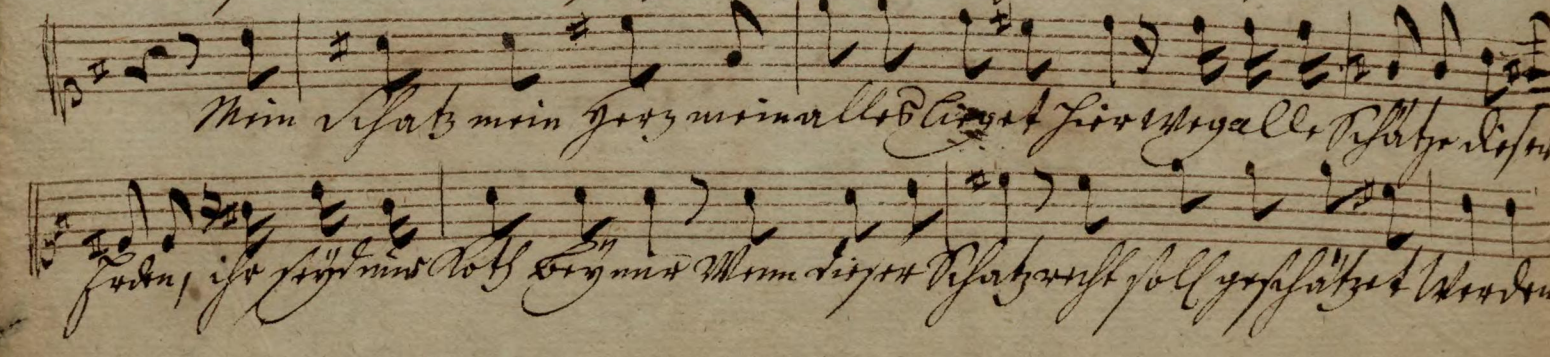 Mein Schatz mein Herz mein alles lieget hier weg alle Schätze dieser
Erden, ihr seyd nur Koth bey mir Wenn dieser Schatz recht soll geschätzet Werden